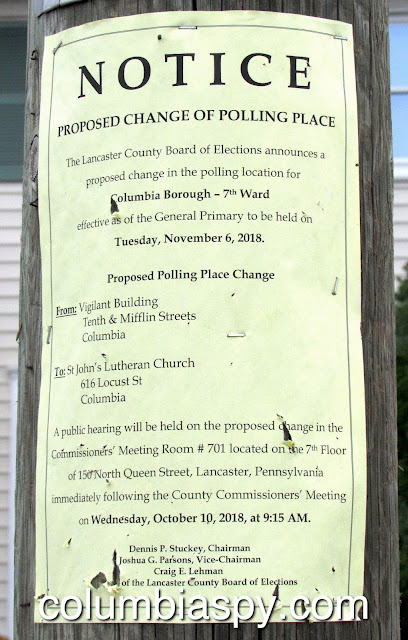 NOTICE
PROPOSED CHANGE OF POLLING PLACE
The Lancaster County Board of Elections announces a
proposed change in the polling location for
Columbia Borough – 7th Ward
effective as of the General Primary to be held on
Tuesday, November 6, 2018.
Proposed Polling Place Change
From: Vigilant Building
Tenth & Mifflin Streets
Columbia
To: St John's Lutheran Church
616 Locust St
Columbia
A public hearing will be held on the proposed change in the
Commissioners' Meeting Room # 701 located on the 7th Floor
of 150 North Queen Street, Lancaster, Pennsylvania
immediately following the County Commissioners' Meeting
on Wednesday, October 10, 2018, at 9:15 AM.
Dennis P. Stuckey, Chairman
Joshua G. Parsons, Vice-Chairman
Craig E. Lehman
of the Lancaster County Board of Elections
columbiaspy.com